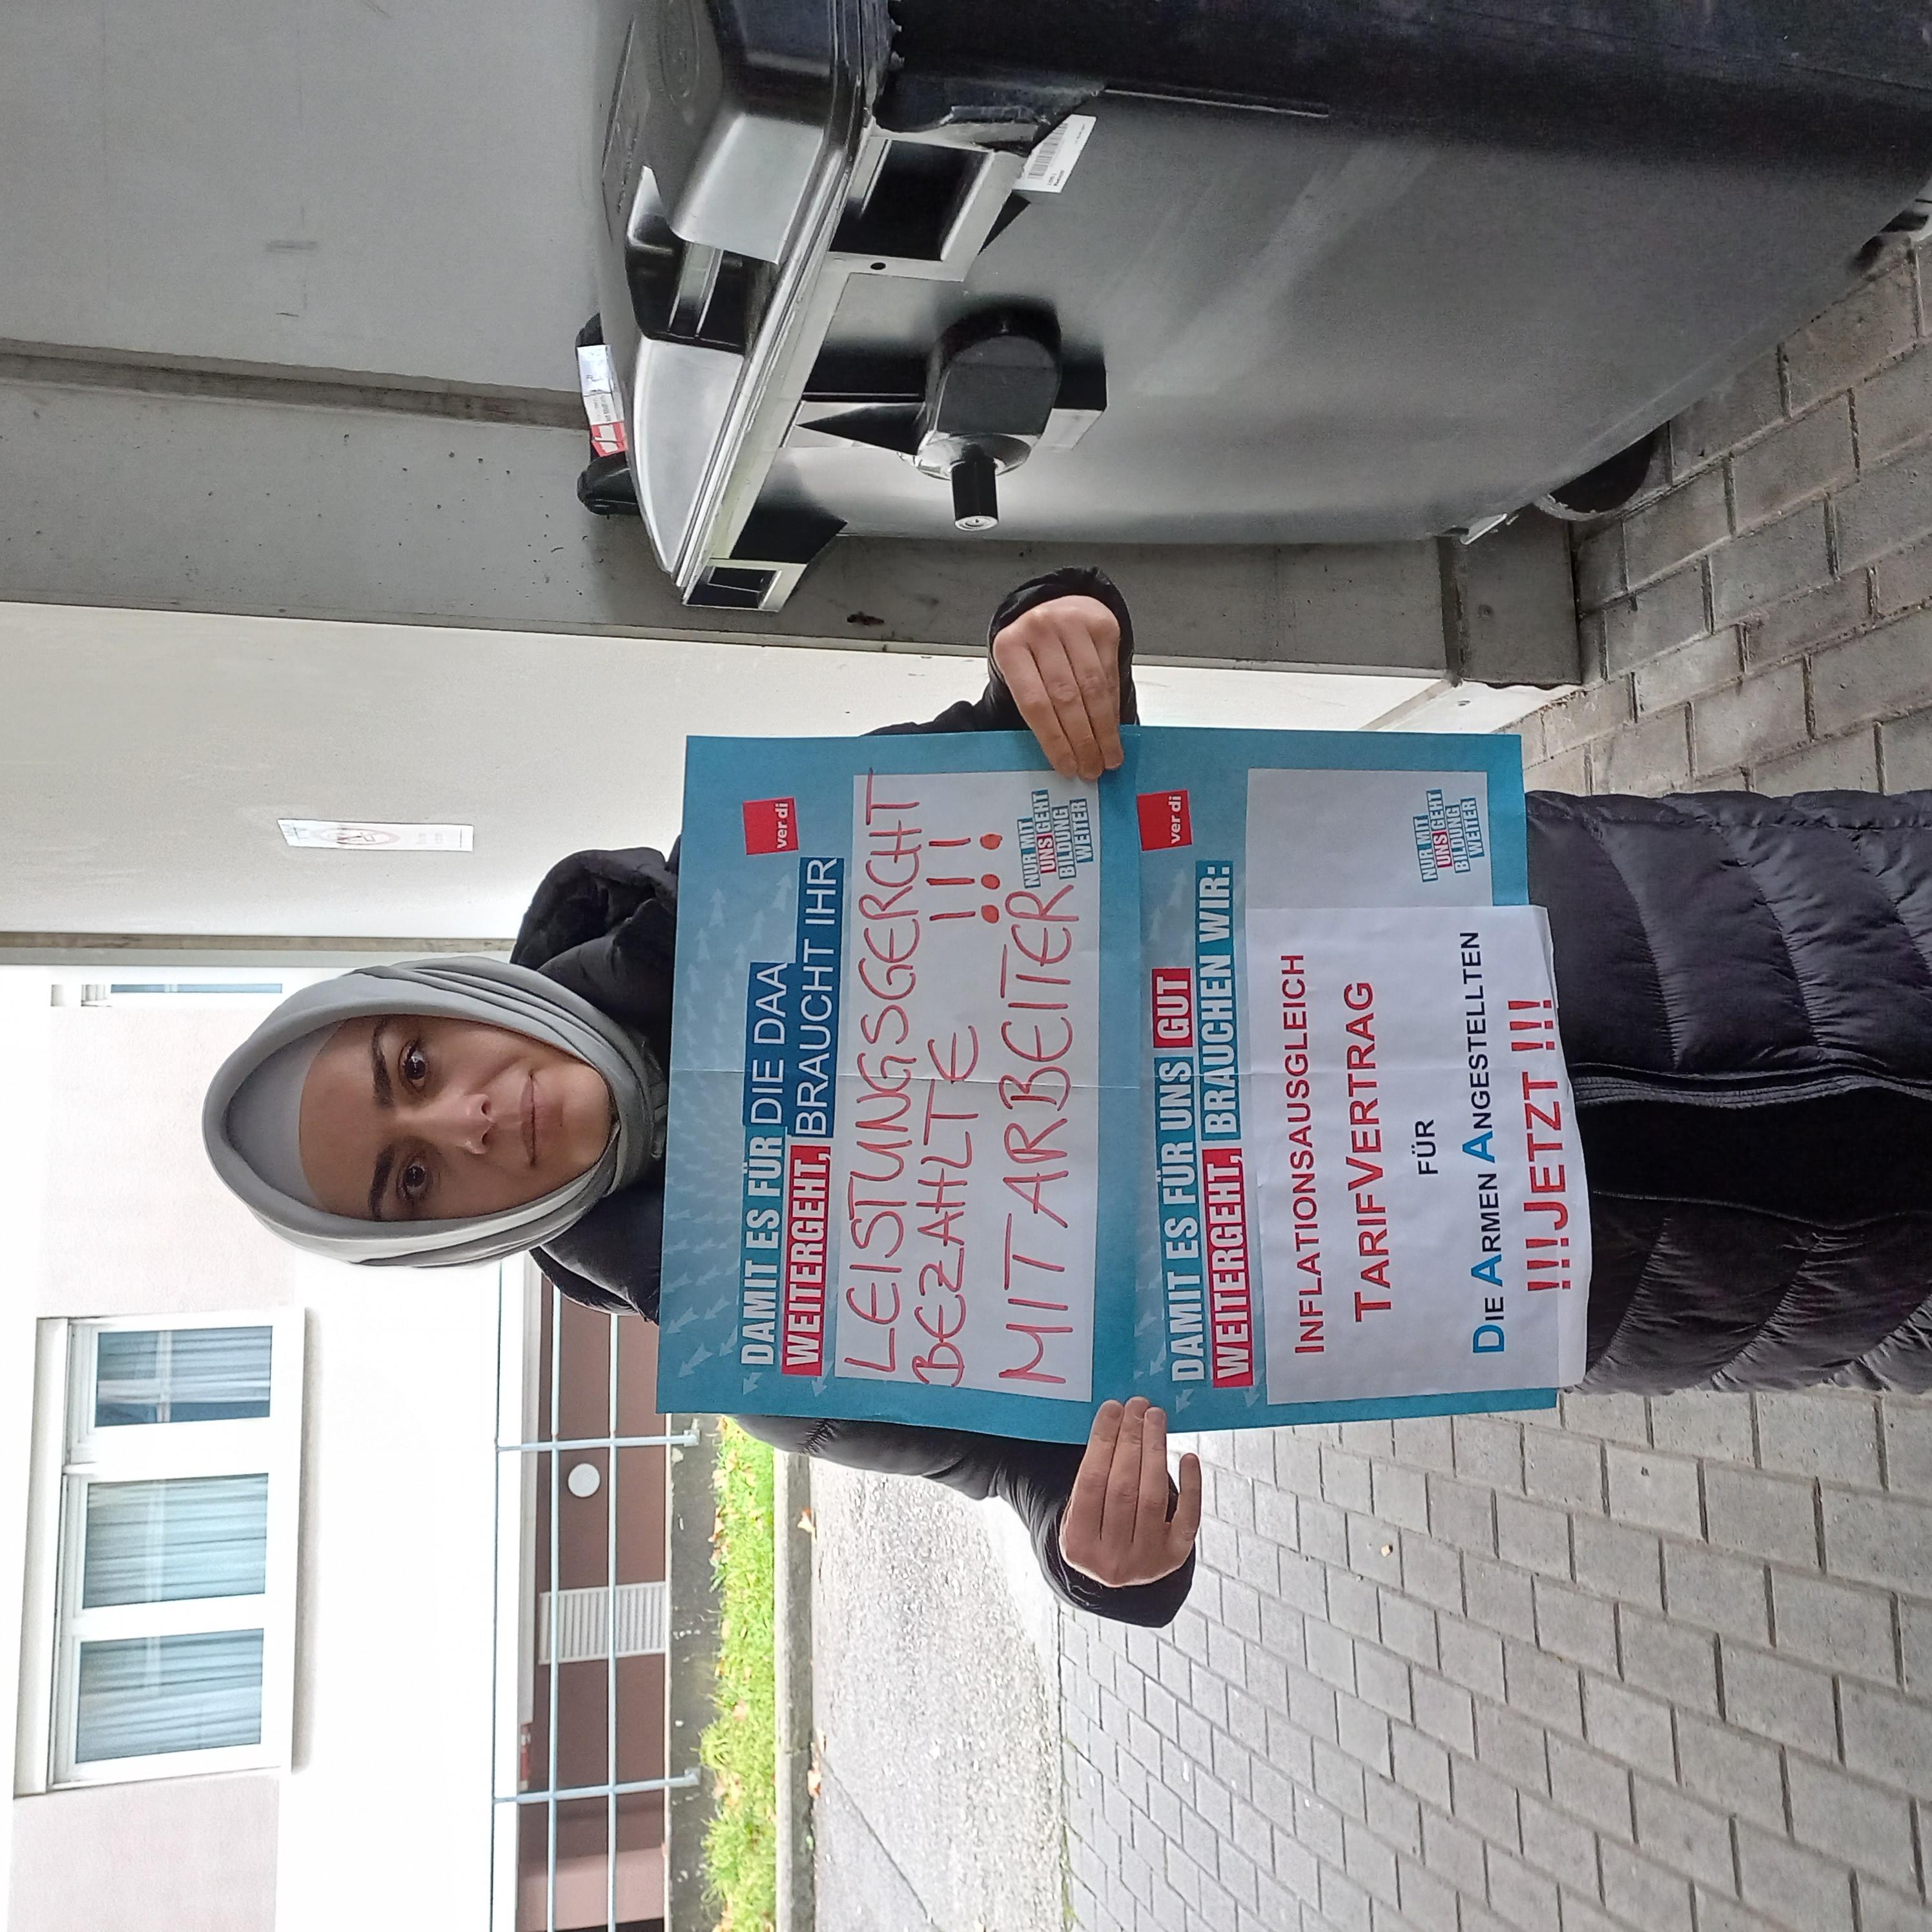 ver.di
DAMIT ES FÜR DIE DAA
WEITERGEHT, BRAUCHT IHR
LEISTUNGSGERCHT
BEZAHLTE !!!
MITARBEITER
NUR MIT
UNS GEHT
BILDUNG
WEITER
ver.di
DAMIT ES FÜR UNS GUT
WEITERGEHT, BRAUCHEN WIR:
INFLATIONSAUSGLEICH
TARIFVERTRAG
FÜR
DIE ARMEN ANGESTELLTEN
!!!JETZT !!!
NUR MIT
UNS GEHT
BILDUNG
WEITER